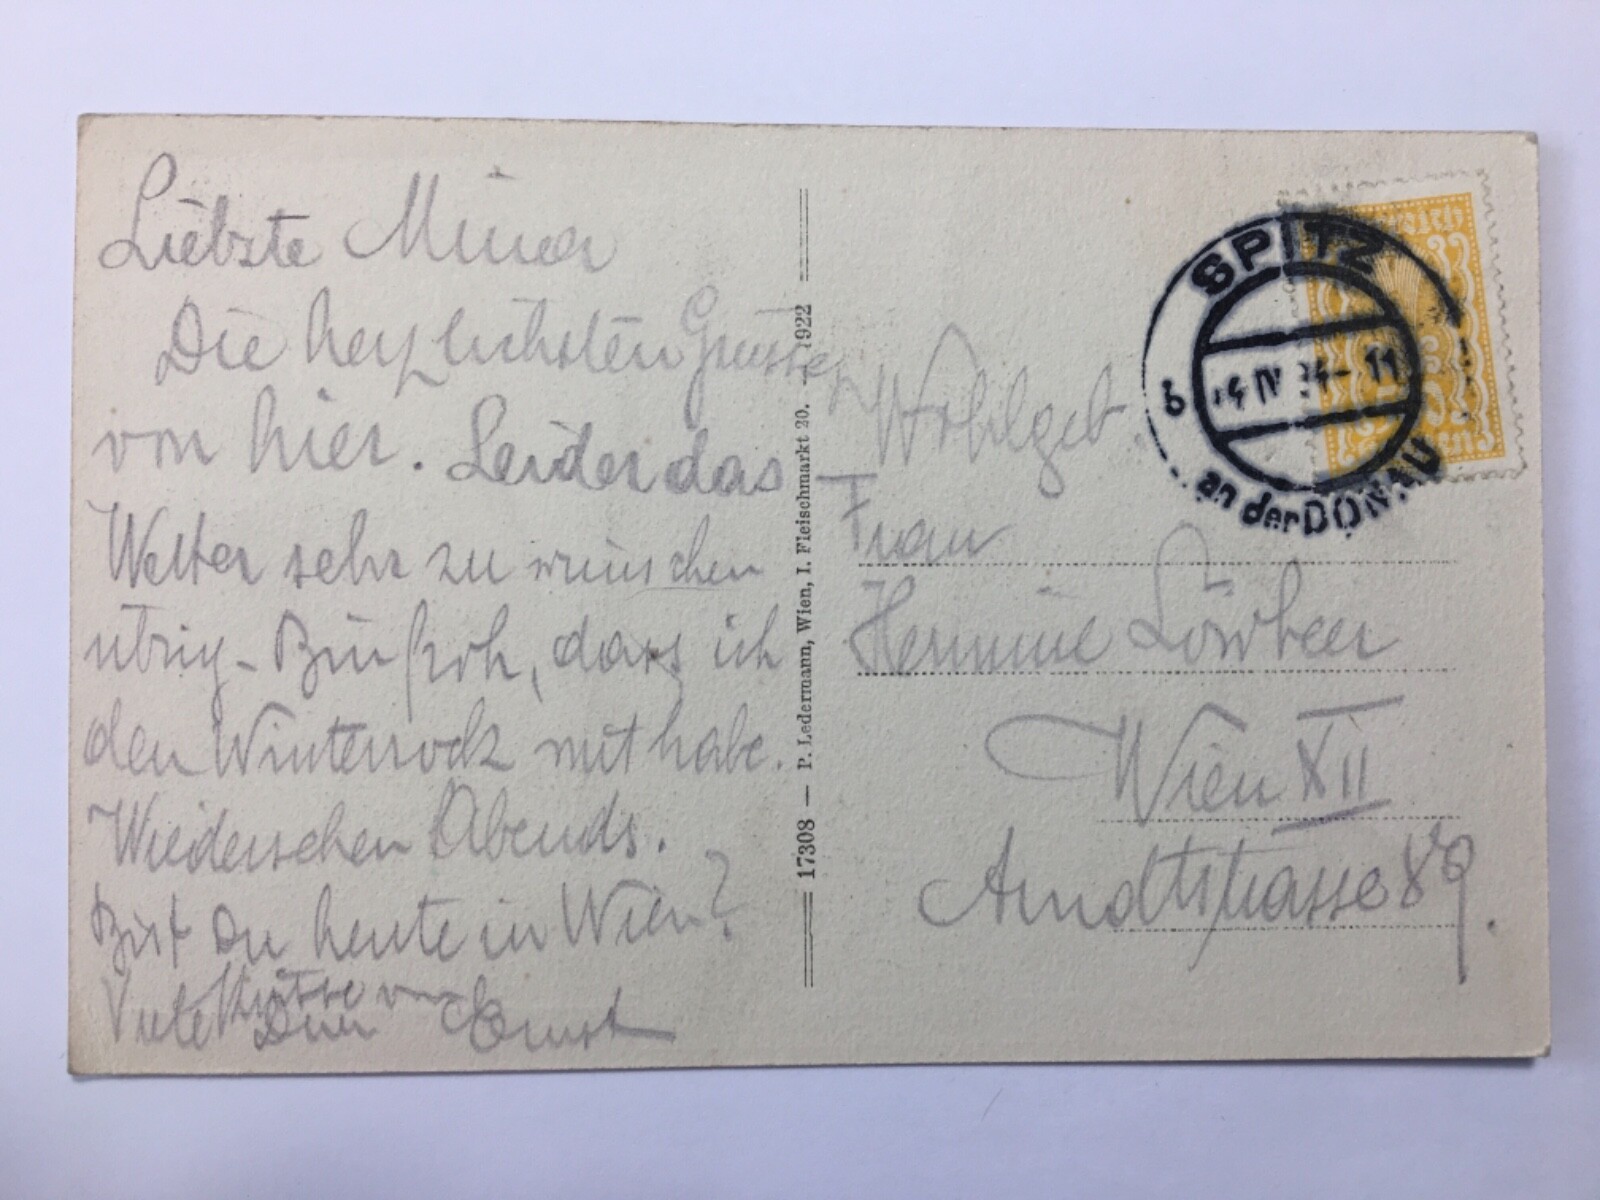 Liebste Minna
Die herzlichsten Grüsse
von hier. Leider das
Wetter sehr zu wünschen
übrig - Bin froh, dass ich
den Winterrock mit habe.
Wiedersehen Abends.
Bist Du heute in Wien?
Viele Küsse von
Dein Ernst
17308 — P. Ledermann, Wien, I. Fleischmarkt 20. — 1922
SPITZ
an der DONAU
b 4 IV 24-11
Wohlgeb.
Frau
Hermine Löwbeer
Wien XII
Arndtstrasse 89.